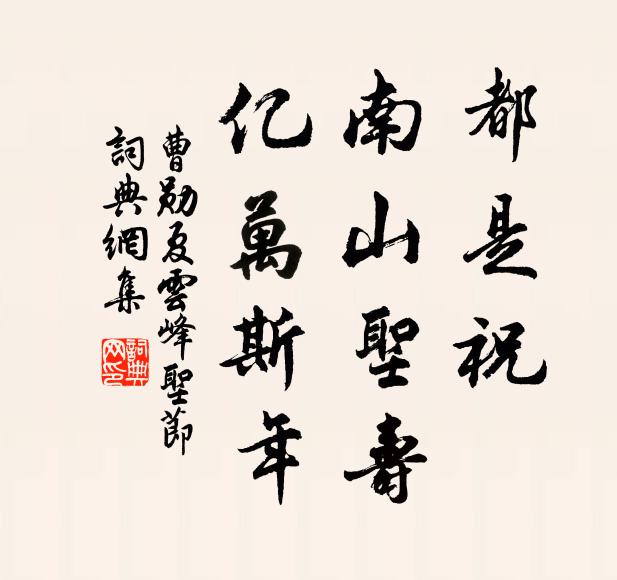 都是祝
南山聖壽
亿萬斯年
曹勛夏雲峰聖節
詞典網集
詞典網印